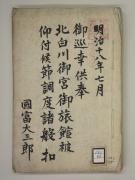 明治十八年七月
御巡幸供奉
北白川御宮御旅館被
仰付候節調度諸般扣
國富大三郎